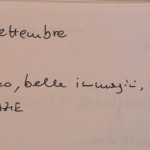 settembre
co, belle immagini,
AZIE